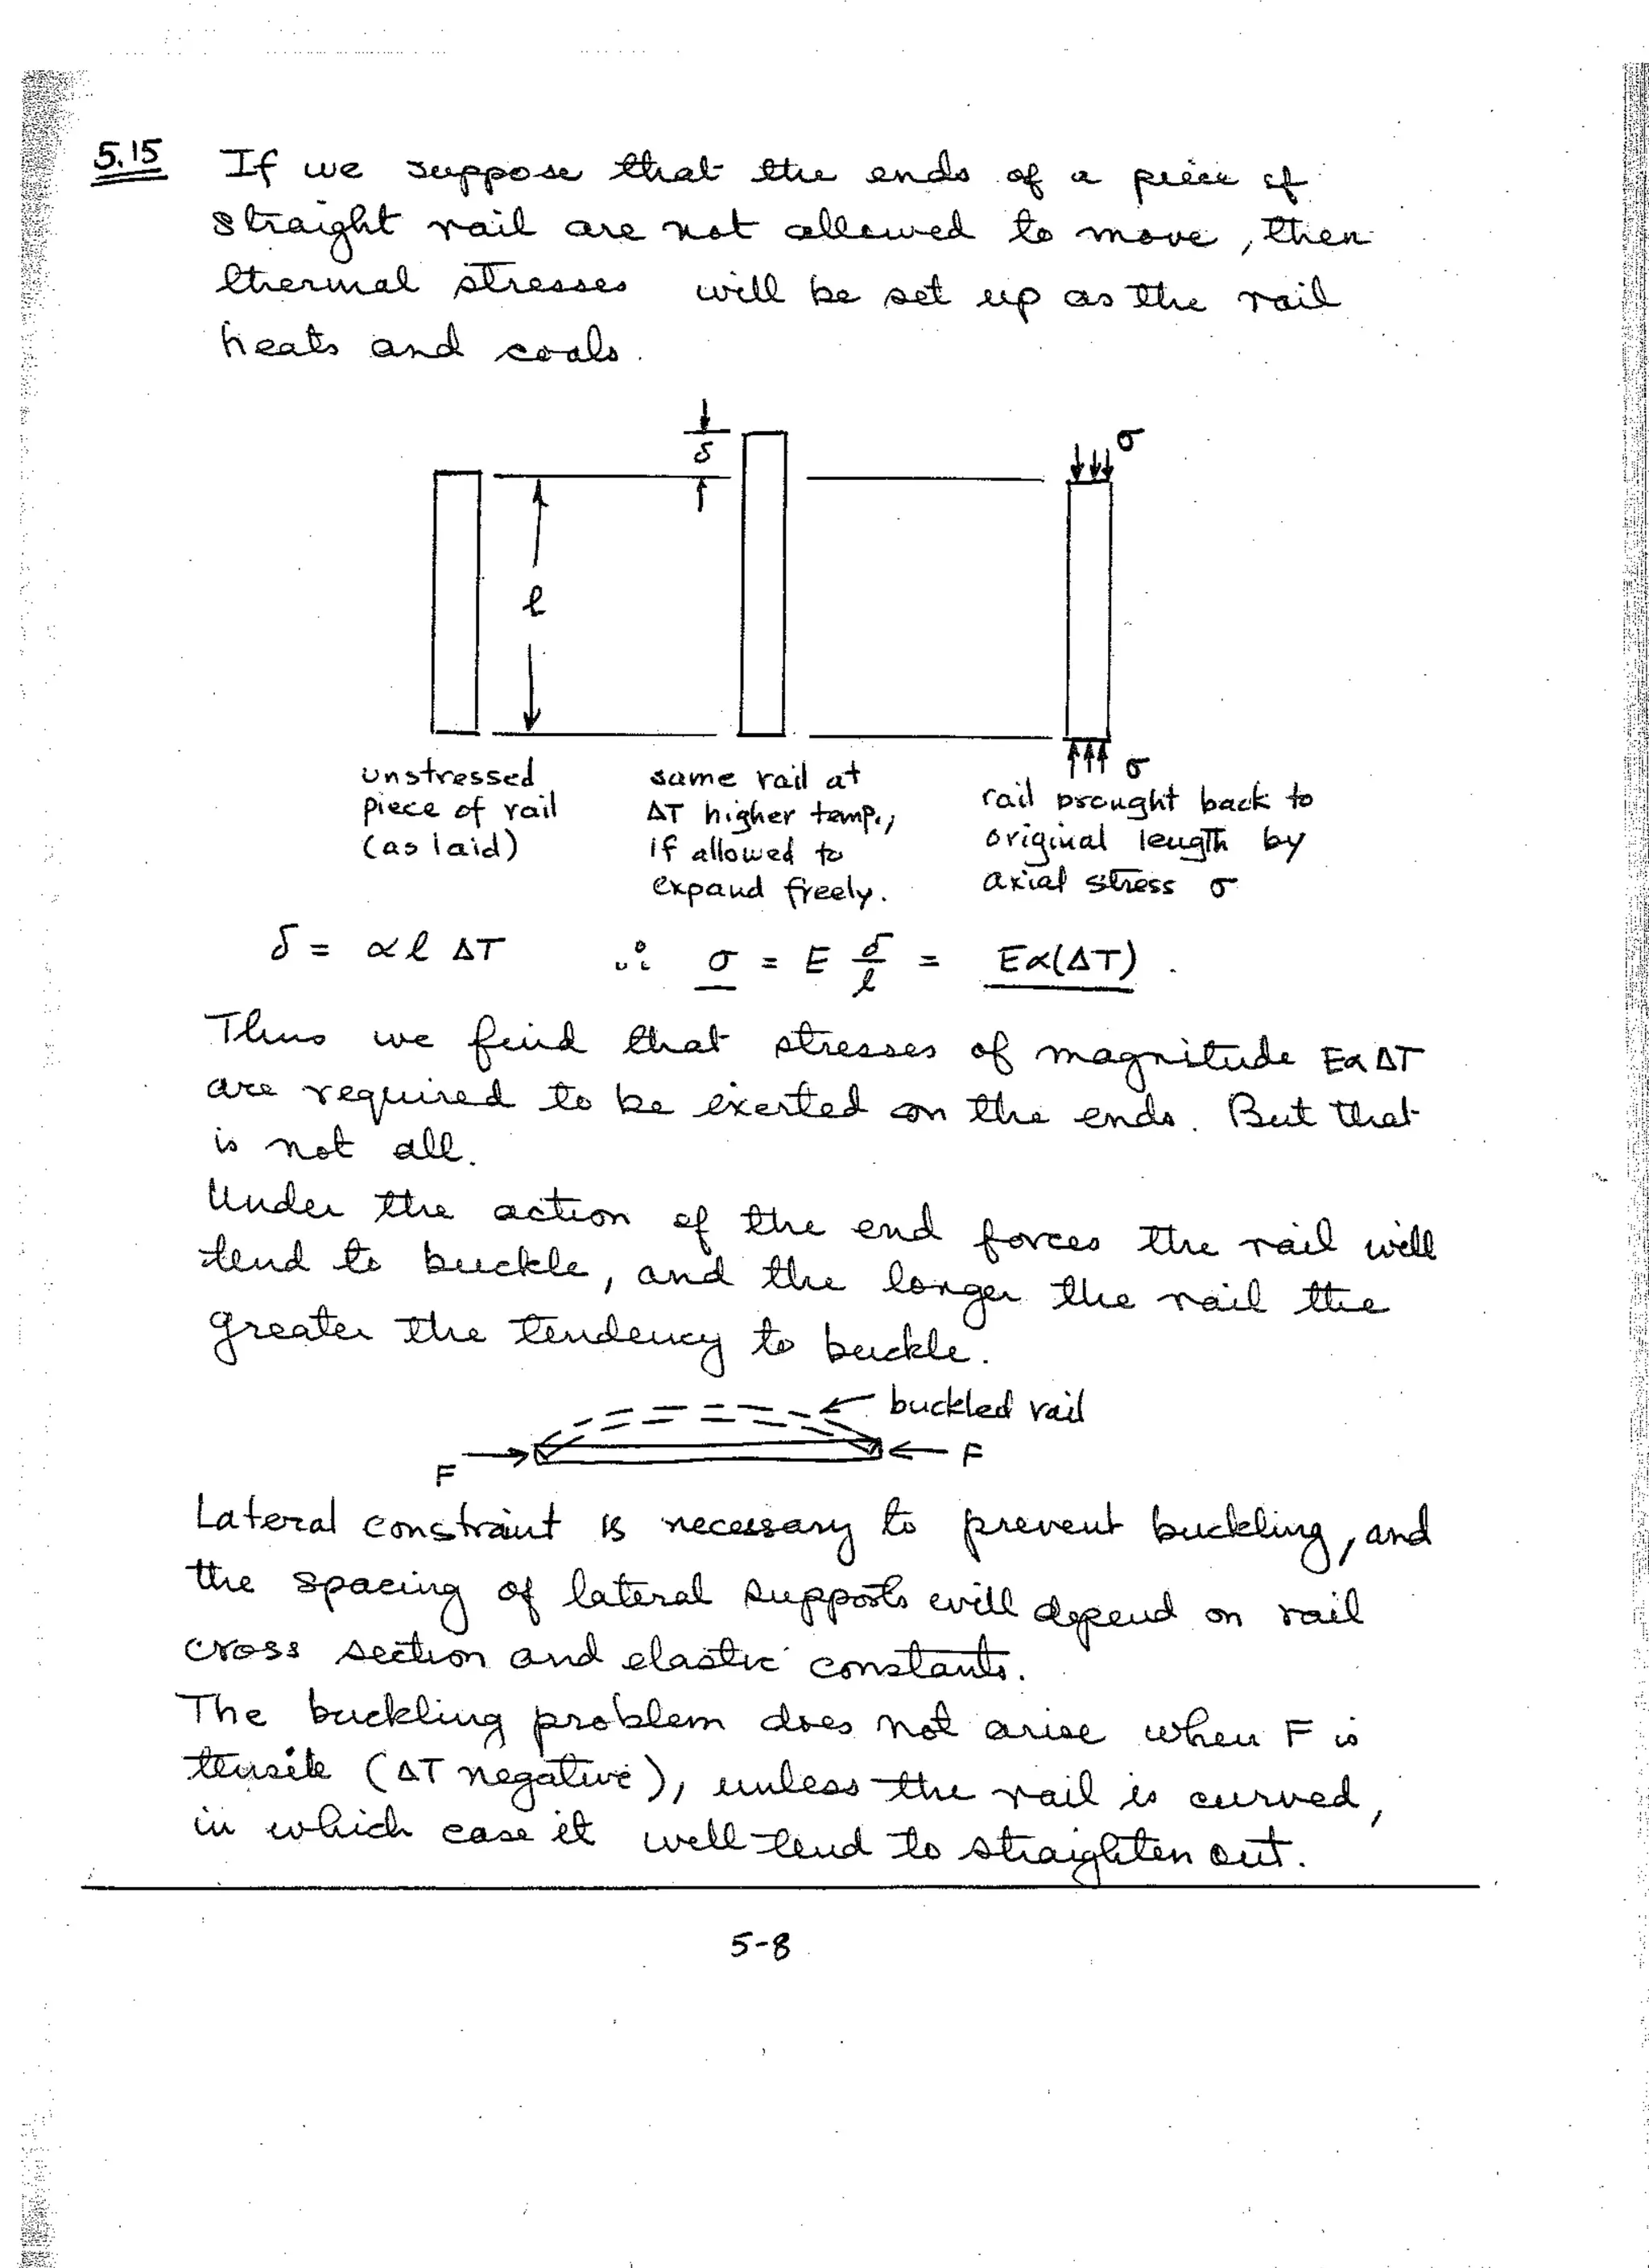 5.15 If we suppose that the ends of a piece of
straight rail are not allowed to move, then
thermal stresses will be set up as the rail
heats and cools.
δ
σ
l
σ
unstressed
piece of rail
(as laid)
same rail at
ΔT higher temp.,
if allowed to
expand freely.
rail brought back to
original length by
axial stress σ
δ = αl ΔT ∴ σ = E δ/l = Eα(ΔT).
Thus we find that stresses of magnitude EαΔT
are required to be exerted on the ends. But that
is not all.
Under the action of the end forces the rail will
tend to buckle, and the longer the rail the
greater the tendency to buckle.
buckled rail
F
F
Lateral constraint is necessary to prevent buckling, and
the spacing of lateral supports will depend on rail
cross section and elastic constants.
The buckling problem does not arise when F is
tensile (ΔT negative), unless the rail is curved,
in which case it will tend to straighten out.
5-8